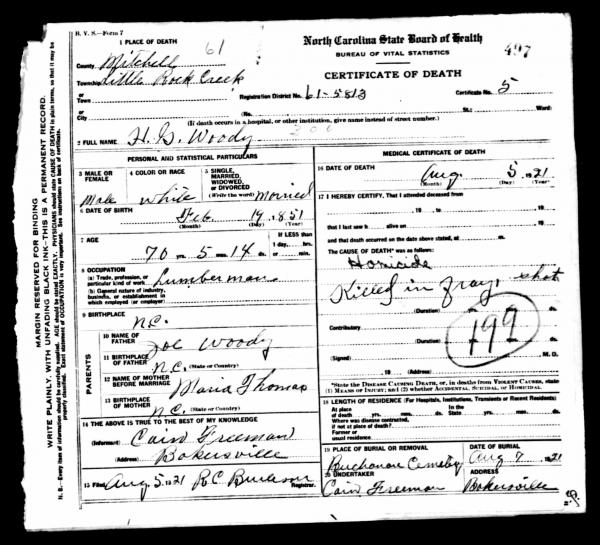 B. V. S.—Form 7
1 PLACE OF DEATH
61
County Mitchell
Township Little Rock Creek
or
Town
or
City
North Carolina State Board of Health
BUREAU OF VITAL STATISTICS
497
CERTIFICATE OF DEATH
Registration District No. 61-5813
Certificate No. 5
St.; Ward)
(If death occurs in a hospital, or other institution, give name instead of street number.)
2 FULL NAME H. G. Woody
PERSONAL AND STATISTICAL PARTICULARS
3 MALE OR FEMALE
Male
4 COLOR OR RACE
White
5 SINGLE, MARRIED, WIDOWED, or DIVORCED
(Write the word) Married
6 DATE OF BIRTH
Feb 19 1851
(Month) (Day) (Year)
7 AGE
70 yrs. 5 mos. 14 ds.
If LESS than
1 day, hrs.
or min.
8 OCCUPATION
(a) Trade, profession, or particular kind of work Lumberman
(b) General nature of industry, business, or establishment in which employed (or employer)
9 BIRTHPLACE
N.C.
PARENTS
10 NAME OF FATHER Joe Woody
11 BIRTHPLACE OF FATHER N.C.
(State or Country)
12 NAME OF MOTHER BEFORE MARRIAGE Maria Thomas
13 BIRTHPLACE OF MOTHER N.C.
(State or Country)
14 THE ABOVE IS TRUE TO THE BEST OF MY KNOWLEDGE
(Informant) Cain Freeman
(Address) Bakersville
15 Filed Aug 5 1921 R.C. Burleson
Registrar.
MEDICAL CERTIFICATE OF DEATH
16 DATE OF DEATH
Aug 5 1921
(Month) (Day) (Year)
17 I HEREBY CERTIFY, That I attended deceased from
, 19 to , 19
that I last saw h alive on , 19
and that death occurred on the date above stated, at m.
The CAUSE OF DEATH* was as follows:
Homicide
Killed in fray, shot
(Duration) yrs. mos. ds.
Contributory
197
(Duration) yrs. mos. ds.
(Signed) M. D.
, 19 (Address)
*State the DISEASE CAUSING DEATH, or, in deaths from VIOLENT CAUSES, state
(1) MEANS OF INJURY; and (2) whether ACCIDENTAL, SUICIDAL, or HOMICIDAL
18 LENGTH OF RESIDENCE (For Hospitals, Institutions, Transients or Recent Residents)
At place of death yrs. mos. ds.
In the State yrs. mos. ds.
Where was disease contracted,
if not at place of death?
Former or
usual residence
19 PLACE OF BURIAL OR REMOVAL
Buchanan Cemetery
DATE OF BURIAL
Aug 7 1921
20 UNDERTAKER
Cain Freeman
ADDRESS
Bakersville
MARGIN RESERVED FOR BINDING
WRITE PLAINLY, WITH UNFADING BLACK INK—THIS IS A PERMANENT RECORD.
N. B.—Every item of information should be carefully supplied. AGE should be stated EXACTLY. PHYSICIANS should state CAUSE OF DEATH in plain terms, so that it may be properly classified. Exact statement of OCCUPATION is very important. See instructions on back of certificate.